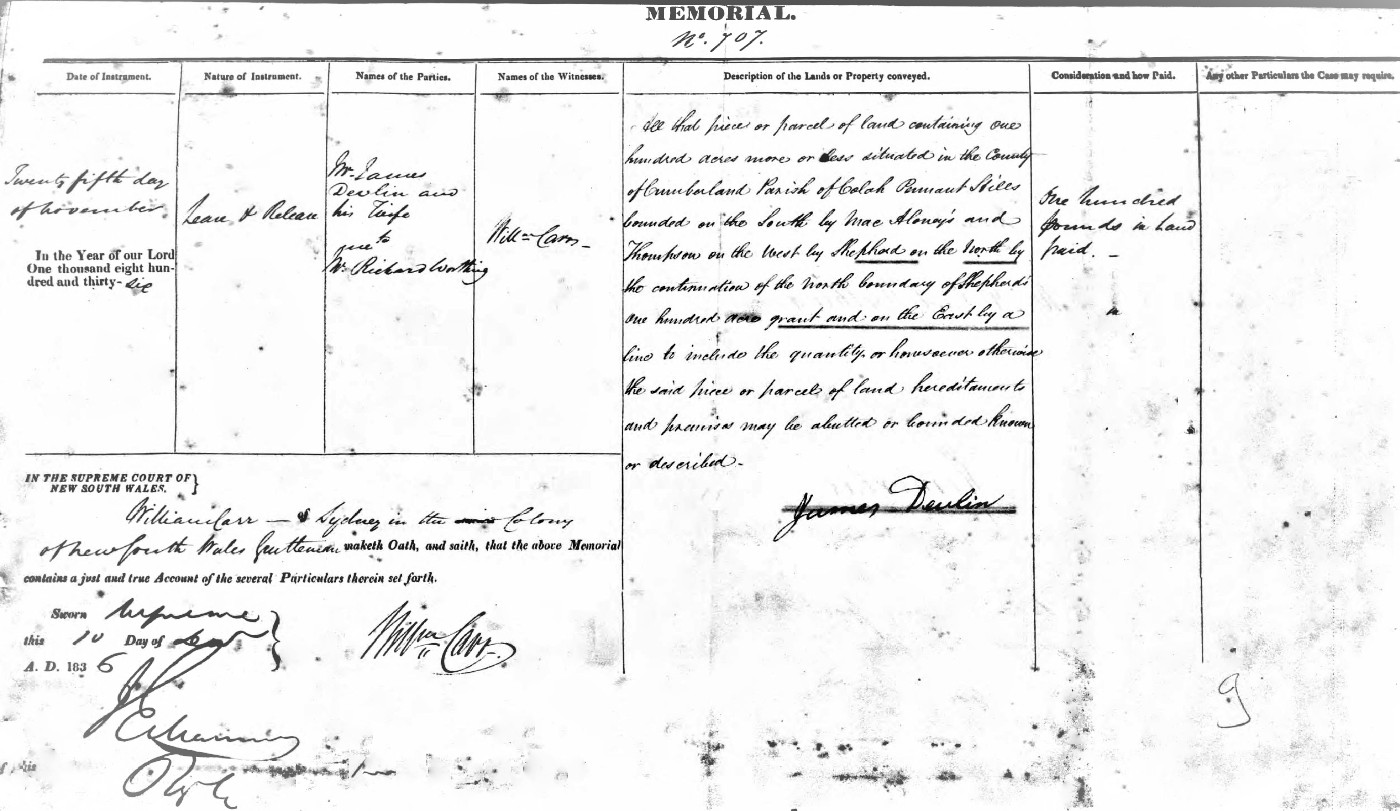 MEMORIAL.
No. 707.
Date of Instrument.
Nature of Instrument.
Names of the Parties.
Names of the Witnesses.
Description of the Lands or Property conveyed.
Consideration and how Paid.
Any other Particulars the Case may require.
Twenty fifth day
of November
In the Year of our Lord
One thousand eight hun-
dred and thirty-six
Lease & Release
Mr. James
Devlin and
his Wife
to
Mr. Richard Worthing
Willm Carr
All that piece or parcel of land containing one
hundred acres more or less situated in the County
of Cumberland Parish of Colah Pennant Hills
bounded on the South by Mac Aloney's and
Thompson on the West by Shepherd on the North by
the continuation of the North boundary of Shepherd's
one hundred acre grant and on the East by a
line to include the quantity or howsoever otherwise
the said piece or parcel of land hereditaments
and premises may be abutted or bounded known
or described
James Devlin
hundred
pounds in hand
paid.
IN THE SUPREME COURT OF
NEW SOUTH WALES.
William Carr of Sydney in the Colony
of New South Wales Gentleman maketh Oath, and saith, that the above Memorial
contains a just and true Account of the several Particulars therein set forth.
Sworn
this 10 Day of
A. D. 1836
Willm Carr
9